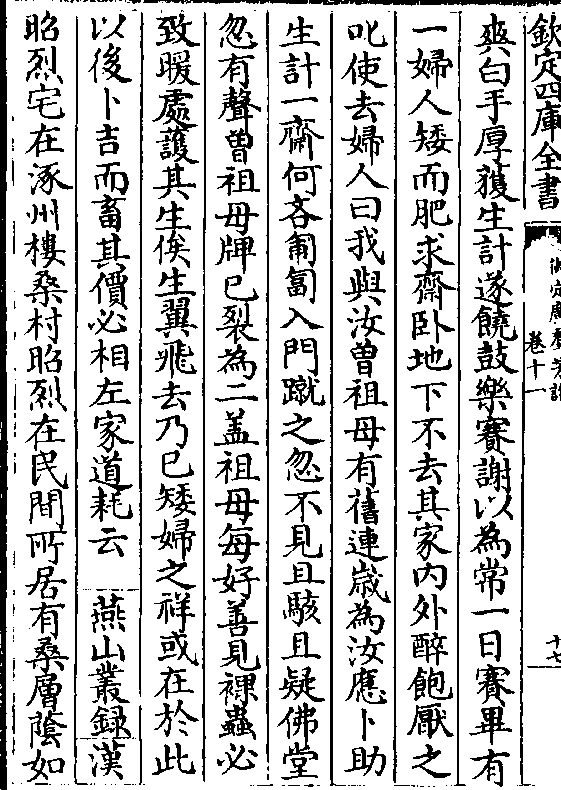 欽定四庫全書
卷十一
十七
爽白手厚獲生計遂饒鼓樂賽謝以為常一日賽畢有
一婦人矮而肥求齋臥地下不去其家内外醉飽厭之
叱使去婦人曰我與汝曾祖母有舊連嵗為汝應卜助
生計一齋何吝匍匐入門蹴之忽不見且駭且疑佛堂
忽有聲曾祖母牌已裂為二盖祖母每好善見裸蟲必
致暖處護其生俟生翼飛去乃已矮婦之祥或在於此
以後卜吉而畜其價必相左家道耗云　燕山叢録漢
昭烈宅在涿州樓桑村昭烈在民間所居有桑層隂如